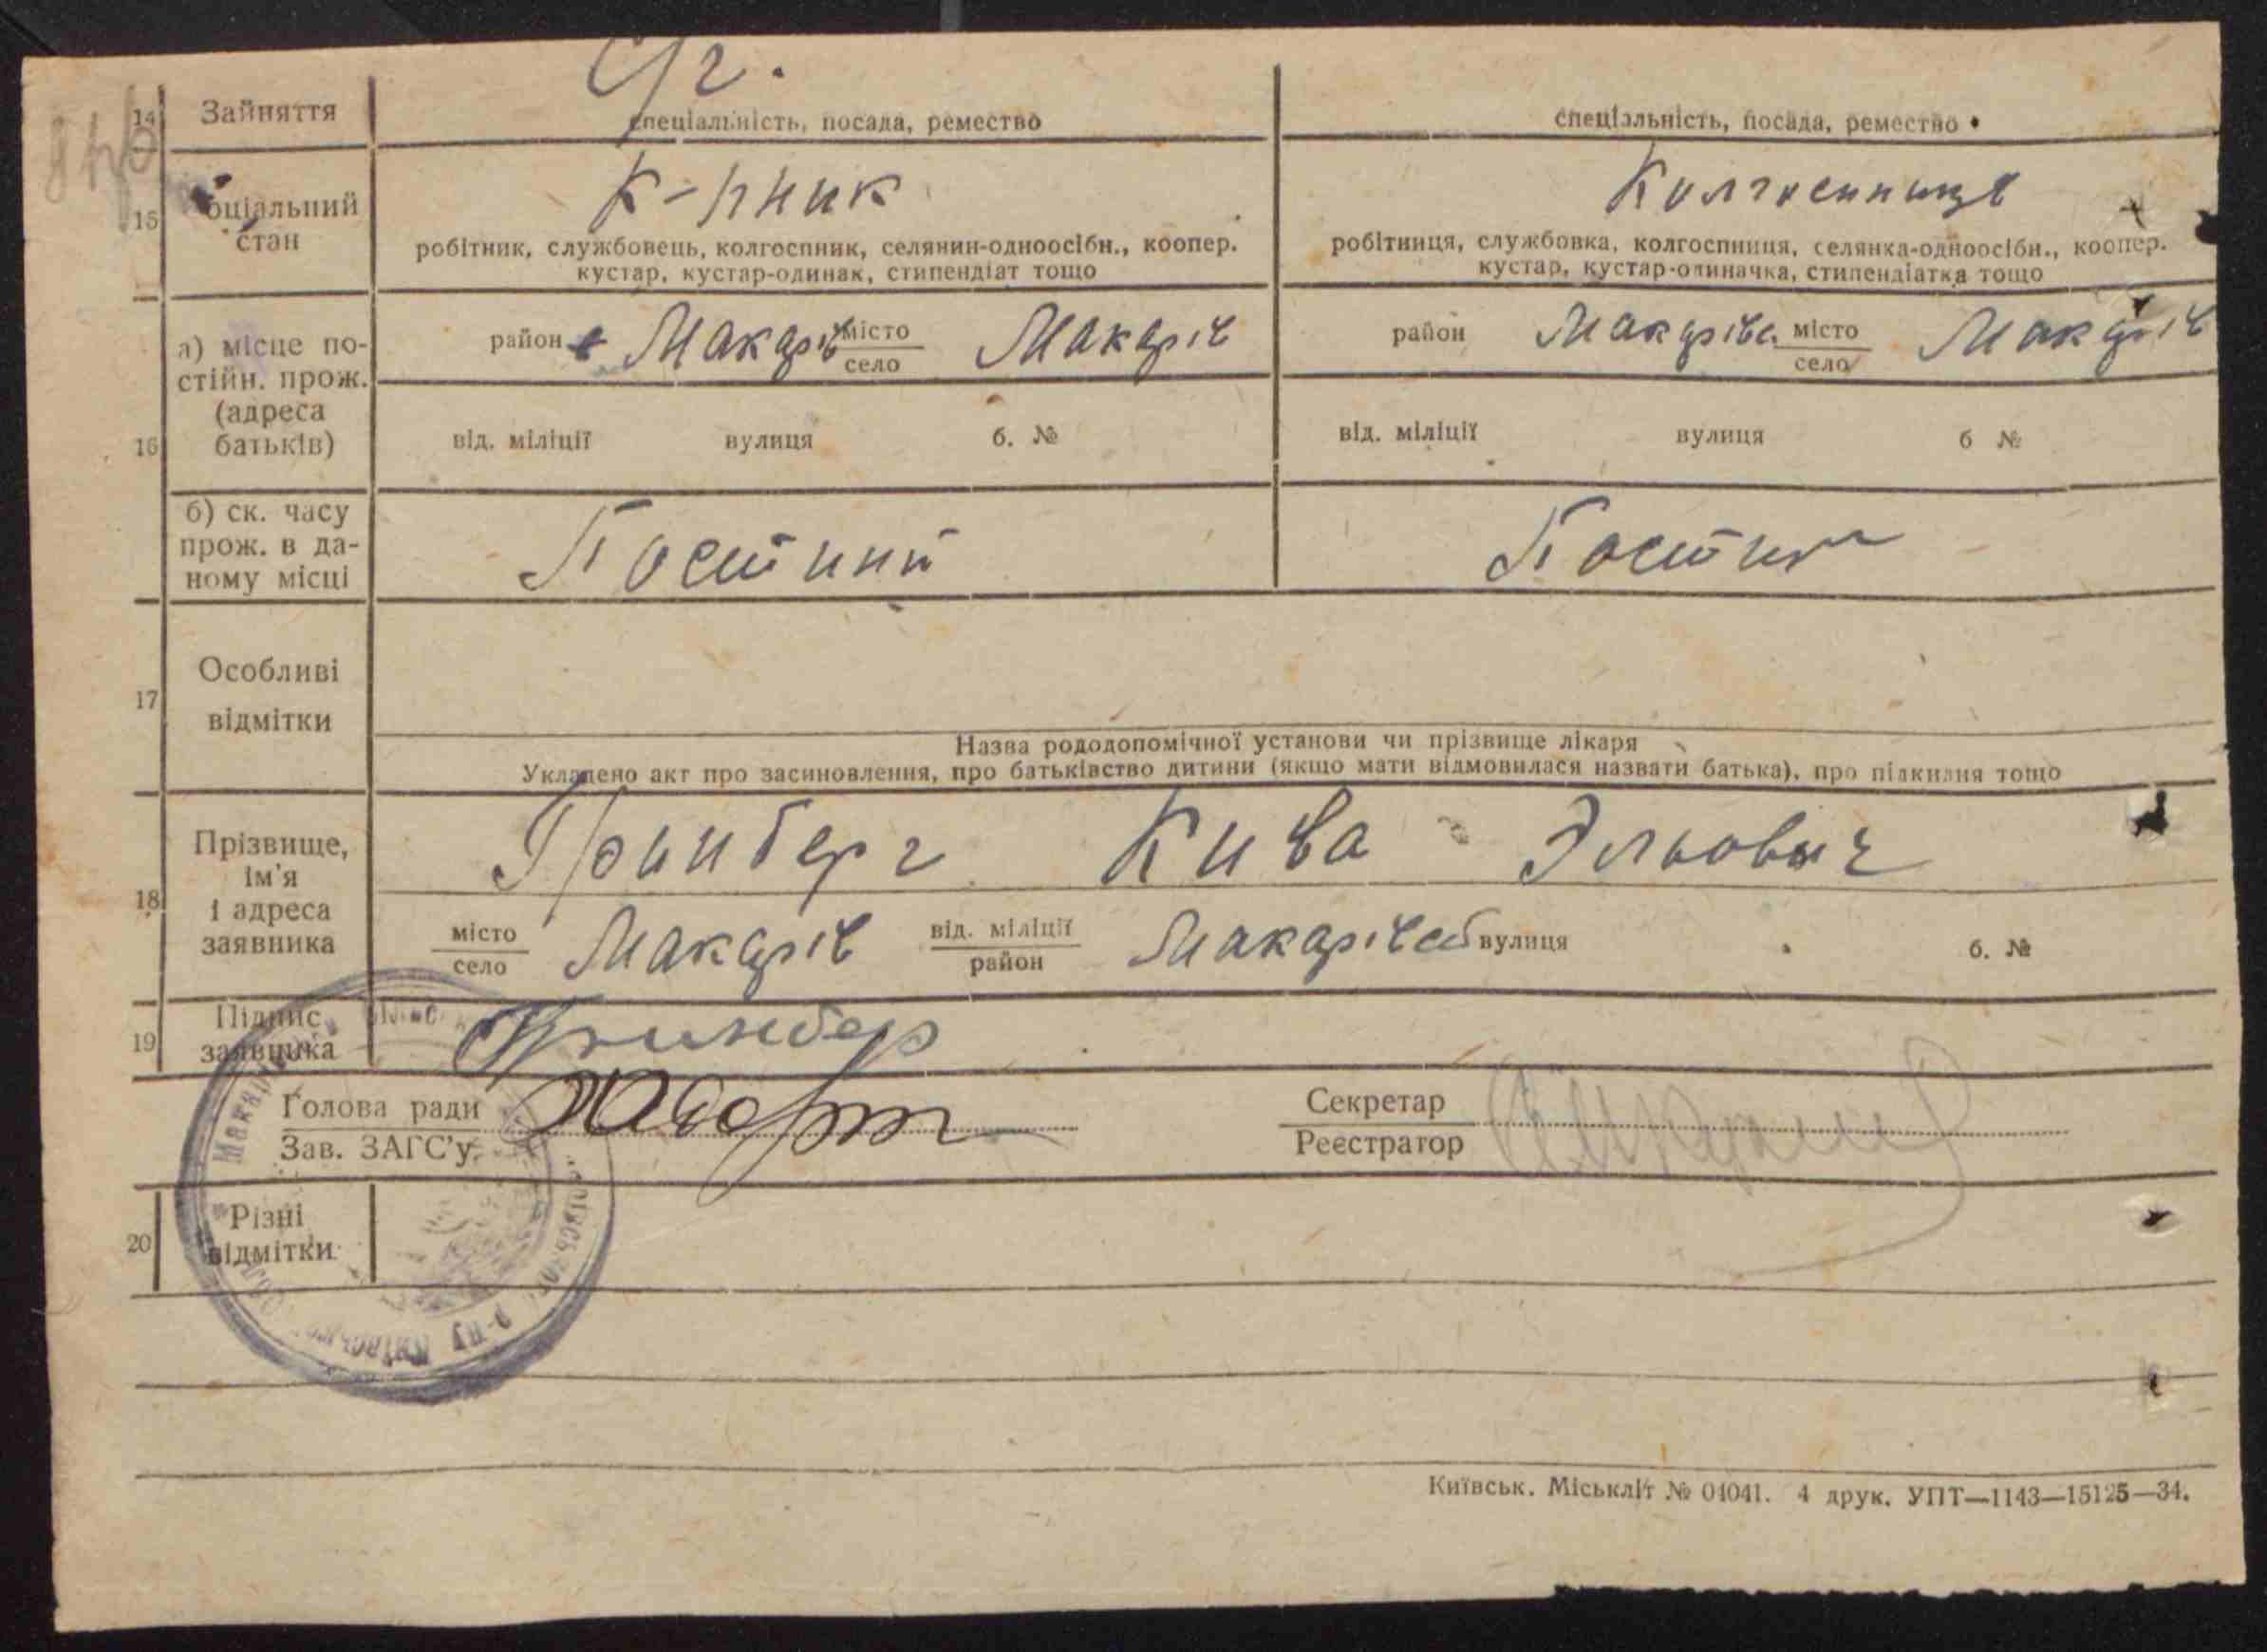 С/г.
14 Зайняття
спеціальність, посада, ремество
спеціальність, посада, ремество
К-пник
Колгоспниця
15 оціальний стан
робітник, службовець, колгоспник, селянин-одноосібн., коопер.
кустар, кустар-одинак, стипендіат тощо
робітниця, службовка, колгоспниця, селянка-одноосібн., коопер.
кустар, кустар-одиначка, стипендіатка тощо
16 а) місце постійн. прож. (адреса батьків)
район Макарів місто село Макарів
район Макарівс. місто село Макарів
від. міліції вулиця б. №
від. міліції вулиця б №
б) ск. часу
прож. в да-
ному місці
Постіний
Постин
17 Особливі
відмітки
Назва рододопомічної установи чи прізвище лікаря
Укладено акт про засиновлення, про батьківство дитини (якщо мати відмовилася назвати батька), про підкидня тощо
18 Прізвище,
ім'я
і адреса
заявника
Гринберг Кива Эльович
місто село Макарів від. міліції район Макарівс вулиця б. №
19 Підпис
заявника
Гринбер
Голова ради
Зав. ЗАГС'у
Секретар
Реєстратор
20 Різні
відмітки
р-ну Київської
Київськ. Міськліт № 04041. 4 друк. УПТ—1143—15125—34.